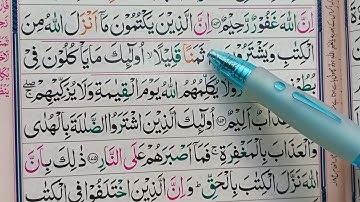 اِنَّ اللّٰهَ غَفُوْرٌ رَّحِيْمٌ اِنَّ الَّذِيْنَ يَكْتُمُوْنَ مَاۤ اَنْزَلَ اللّٰهُ مِنَ
الْكِتٰبِ وَيَشْتَرُوْنَ ثَمَنًا قَلِيْلًا اُولٰٓئِكَ مَا يَاْكُلُوْنَ فِيْ
وَلَا يُكَلِّمُهُمُ اللّٰهُ يَوْمَ الْقِيٰمَةِ وَلَا يُزَكِّيْهِمْ
عَذَابٌ اَلِيْمٌ اُولٰٓئِكَ الَّذِيْنَ اشْتَرَوُا الضَّلٰلَةَ بِالْهُدٰى
وَالْعَذَابَ بِالْمَغْفِرَةِ فَمَاۤ اَصْبَرَهُمْ عَلَى النَّارِ ذٰلِكَ بِاَنَّ
اللّٰهَ نَزَّلَ الْكِتٰبَ بِالْحَقِّ وَاِنَّ الَّذِيْنَ اخْتَلَفُوْا فِي الْكِتٰبِ